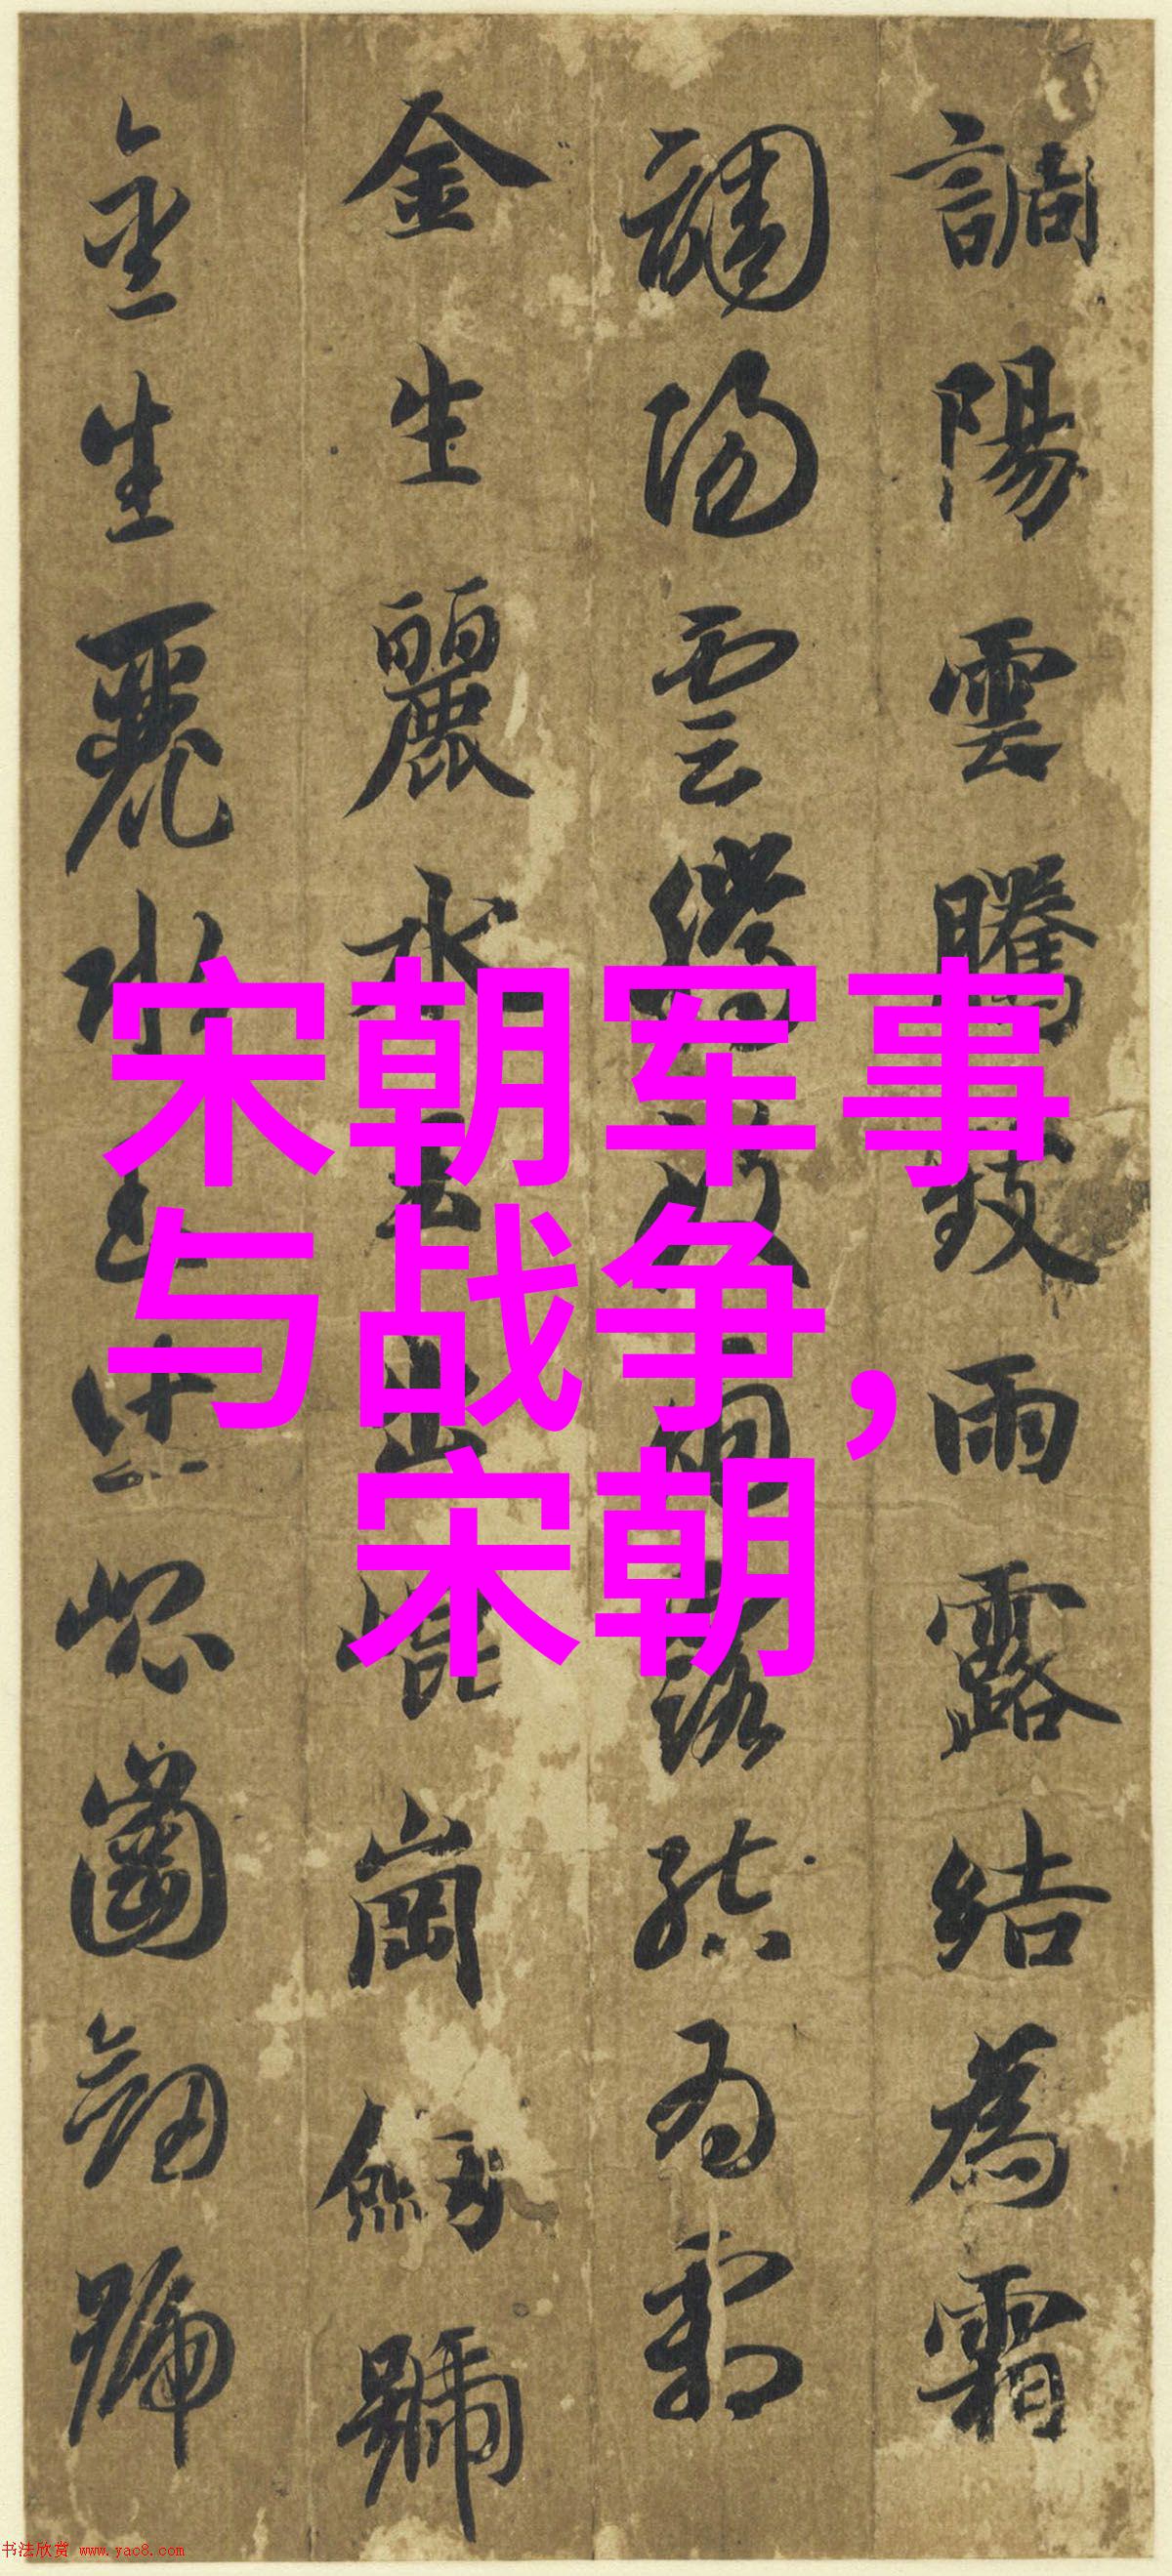 調陽雲騰致雨露結為霜
調陽雲騰致雨露結為霜
金生麗水玉出崑崗劒號
金生麗水玉出崑崗劒號
宋朝军事
与战争，
宋朝
书法欣赏 www.yac8.com